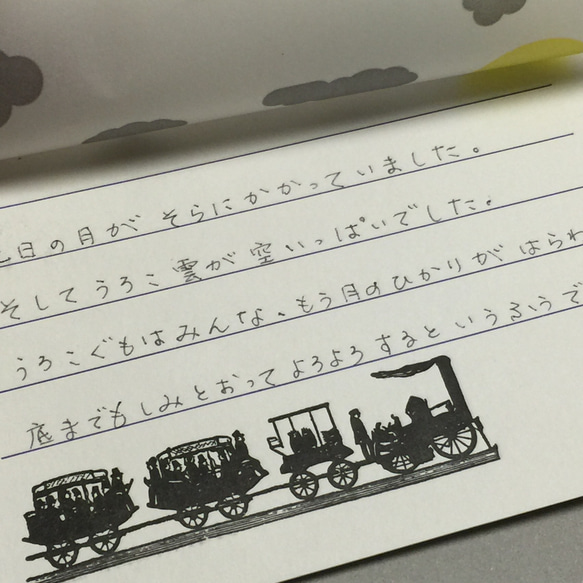 日の月が そらにかかっていました。
そしてうろこ雲が空いっぱいでした。
うろこぐもはみんな、もう月のひかりが はらわ
底までもしみとおって よろよろするというふうで